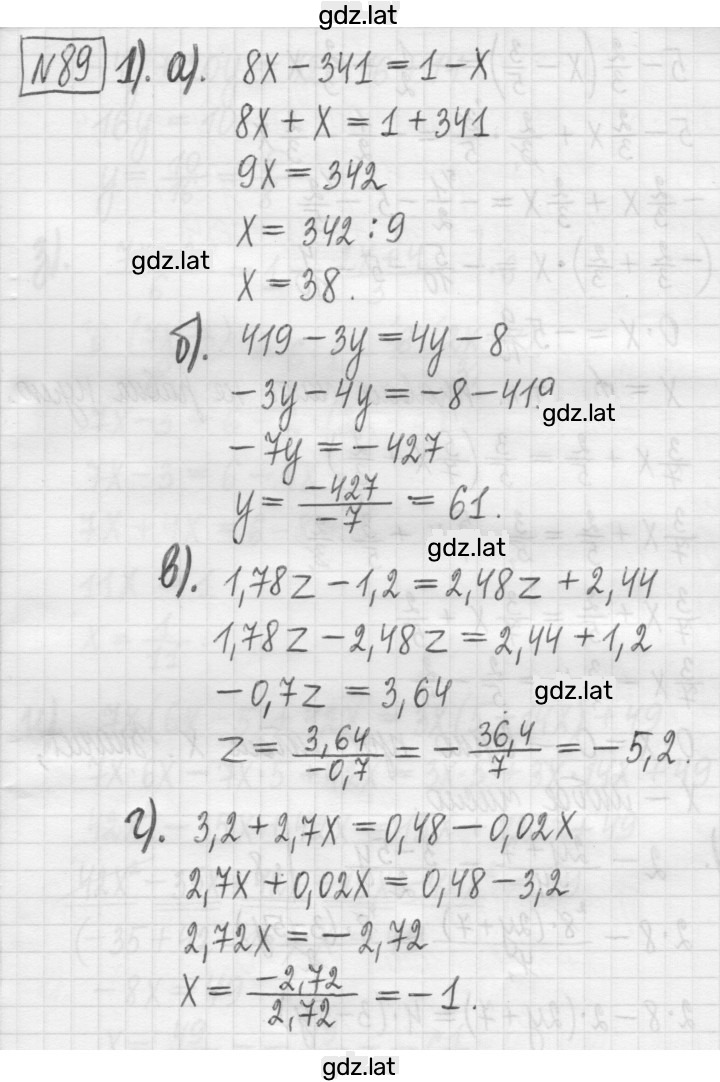 gdz.lat
N89 1). а). 8x − 341 = 1 − x
8x + x = 1 + 341
9x = 342
x = 342 : 9
gdz.lat
x = 38.
б). 419 − 3y = 4y − 8
−3y − 4y = −8 − 419
gdz.lat
−7y = −427
y = −427/−7 = 61.
gdz.lat
в). 1,78z − 1,2 = 2,48z + 2,44
1,78z − 2,48z = 2,44 + 1,2
−0,7z = 3,64
gdz.lat
z = 3,64/−0,7 = −36,4/7 = −5,2.
г). 3,2 + 2,7x = 0,48 − 0,02x
2,7x + 0,02x = 0,48 − 3,2
2,72x = −2,72
x = −2,72/2,72 = −1.
gdz.lat